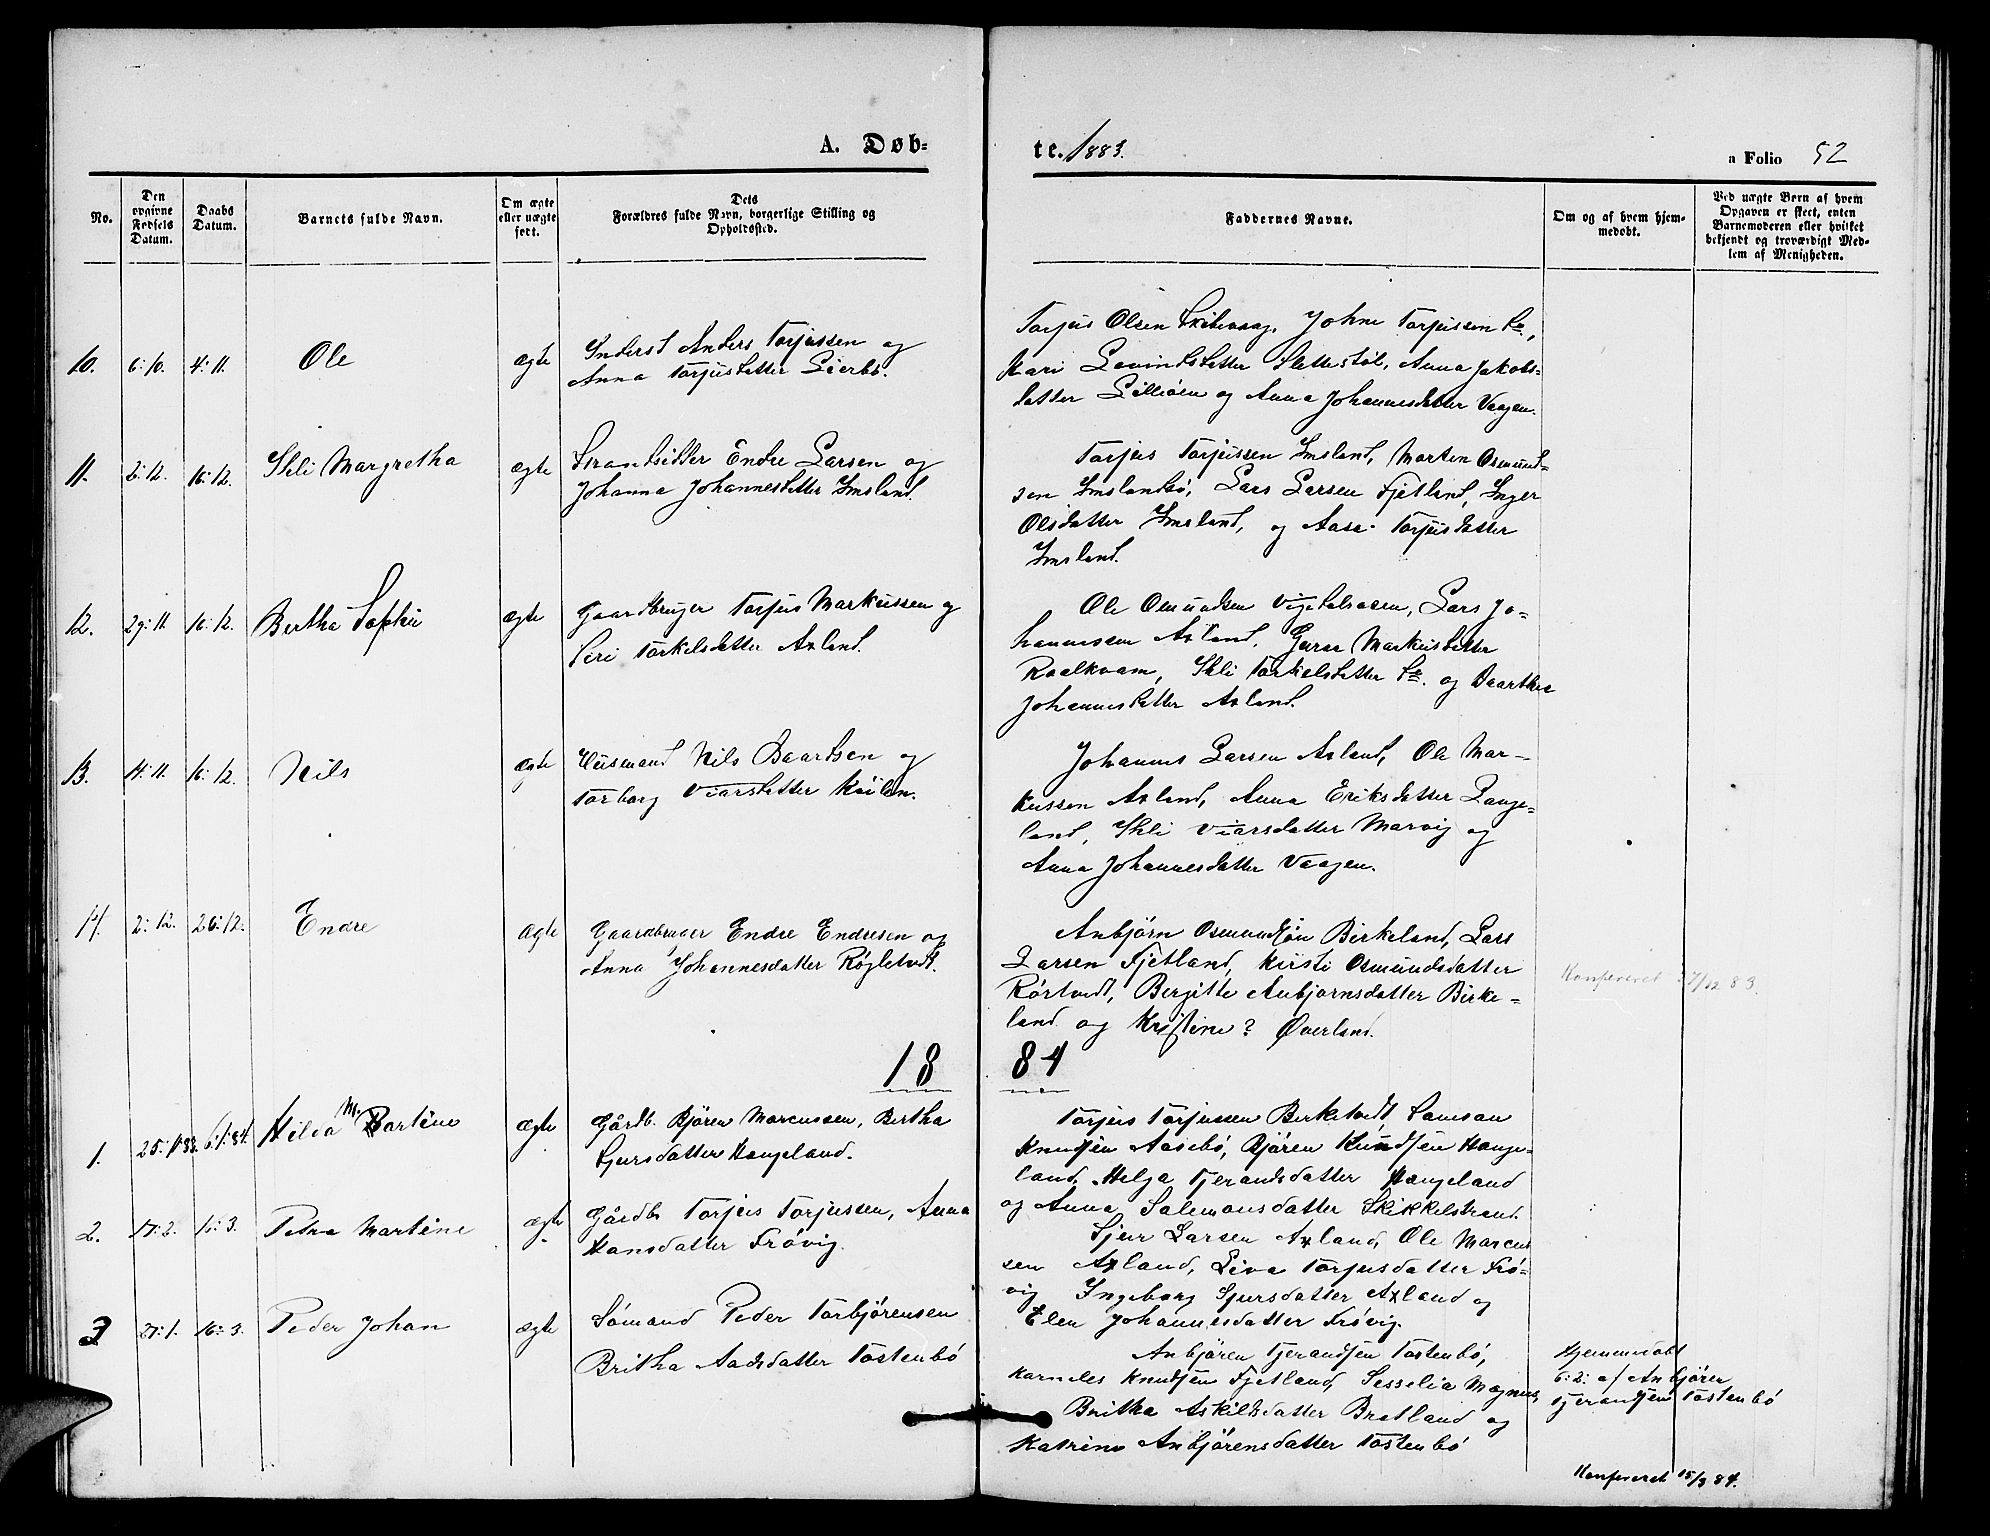 A. Døb-
te. 1883.
a Folio 52
No.
Den opgivne Fødsels Datum.
Daabs Datum.
Barnets fulde Navn.
Om ægte eller uægte født.
Dets Forældres fulde Navn, borgerlige Stilling og Opholdssted.
Faddernes Navne.
Om og af hvem hjemmedøbt.
Ved uægte Børn af hvem Opgaven er skeet, enten Barnemoderen eller hvilket bekjendt og troværdigt Medlem af Menigheden.
10. 6:10. 4:11. Ole ægte
Inderst Anders Torjussen og
Anna Torjusdatter Leerbø.
Torjus Olsen Skibevaag, Johne Torjussen
Kari datter Slettestøl, Anna Jakobs-
datter og Anna Johannesdatter Vaagen.
11. 2:12. 16:12. Skli Margretha ægte
Strandsidder Endre Larsen og
Johanna Johannesdatter Imsland.
Torjus Torjussen Imsland, Morten Osmund-
sen Imslandbø, Lars Larsen Fjetland, Inger
Olsdatter Imsland, og Aase Torjusdatter
Imsland.
12. 29:11. 16:12. Bertha Sophie ægte
Gaardbruger Torjus Markussen og
Siri Torkelsdatter Axland.
Ole Osmundsen Vigedalsosen, Lars Jo-
hannessen Axland, Guroe Markusdatter
Raalkvam, Skli Torkelsdatter og Baarthee
Johannesdatter Axland.
13. 11:11. 16:12. Nils ægte
Husmand Nils Baardsen og
Torborg Viarsdatter Kvilen.
Johannes Larsen Axland, Ole Mar-
kussen Axland, Anna Eriksdatter Lange-
land, Skli Viarsdatter Marvig og
Anna Johannesdatter Vaagen.
14. 2:12. 26:12. Endre ægte
Gaardbruger Endre Endresen og
Anna Johannesdatter Røgletvedt.
Anbjørn Osmundsøn Birkeland, Lars
Larsen Fjetland, Kirsti Osmundsdatter
Rørtvedt, Bergitte Anbjørnsdatter Birke-
land og Kristine? Øverland.
Konfereret 31/12 83.
18 84
1. 25:11 83. 6:1:84. Hilda M. Bartine ægte
Gårdb. Bjøren Marcussen, Bertha
Sjursdatter Hangeland.
Torjus Torjussen Birketvedt, Samson
Knudsen Aasebø, Bjøren Knudsen Hange-
land, Helga Tjerandsdatter Hangeland
og Anna Salemonsdatter Skikkelstrand.
2. 17:2. 16:3. Petra Martine ægte
Gårdb. Torjus Torjussen, Anna
Hansdatter Frøvig.
Sjur Larsen Axland, Ole Marcus
sen Axland, Liva Torjusdatter Frø-
vig Ingeborg Sjursdatter Axland og
Elen Johannesdatter Frøvig.
3 27:1. 16:3. Peder Johan ægte
Sømand Peder Torbjørensen
Britha Aadsdatter Tostenbø
Anbjøren Tjerandsen Tostenbø,
Karneles Knudsen Fjetland, Sesselia Magnus,
Britha Askildsdatter Bratland og
Katrine Anbjørensdatter Tostenbø
Hjemmedøbt
6:2: af Anbjøren
Tjerandsen Tostenbø
Konfereret 15/3 84.